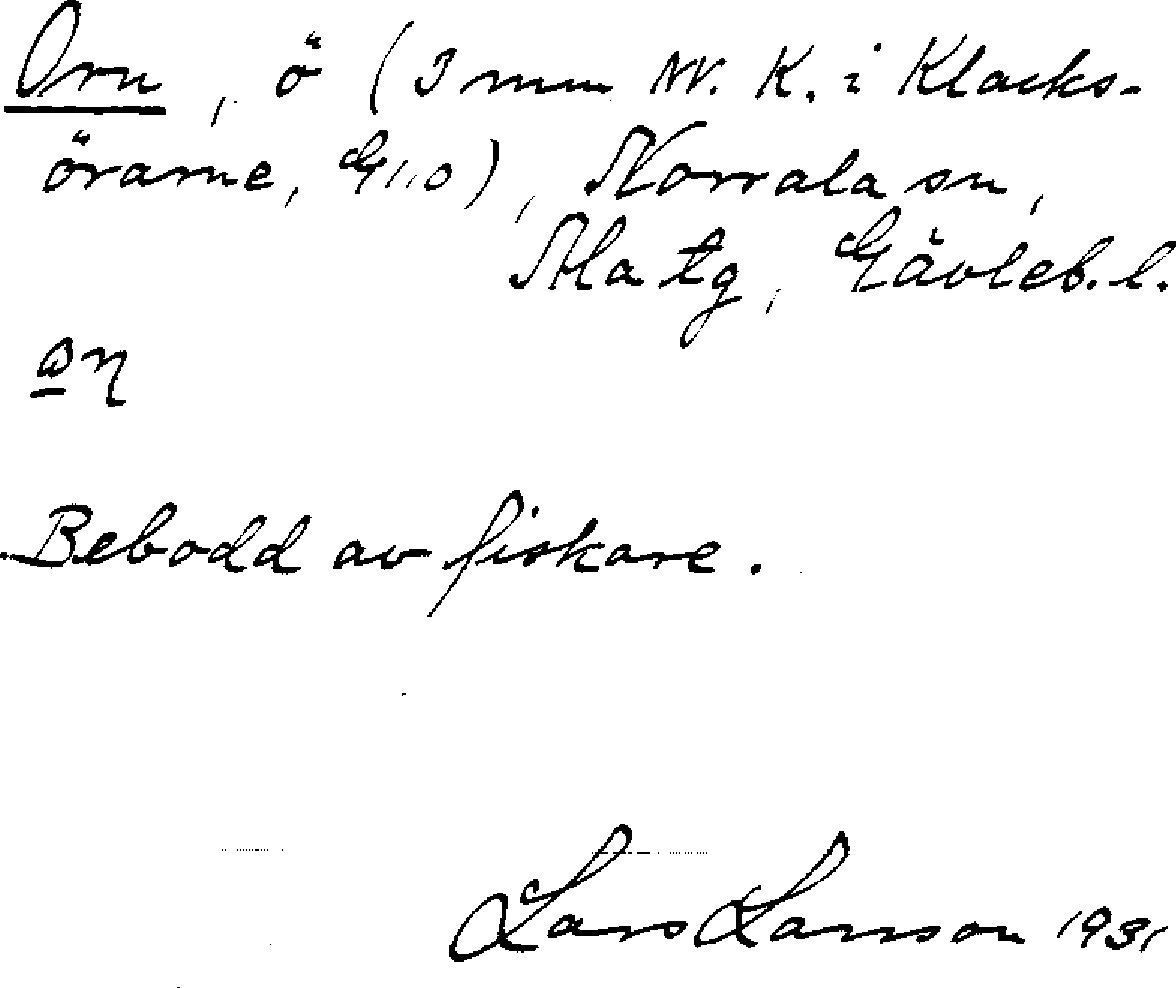 Orn, ö (3 mm NV. K. i Klacks-
örarne, G110), Norrala sn,
Ala tg, Gävleb. l.
Bebodd av fiskare.
Lars Larsson 1931